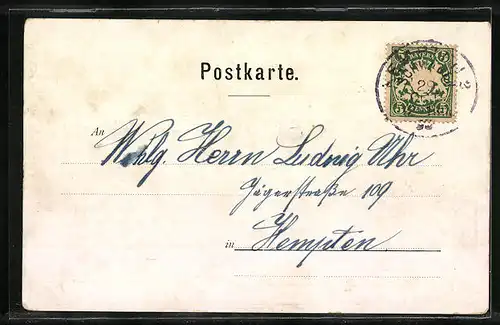 Postkarte.
BAYERN
3
22
3 3
An
Wohlg. Herrn Ludwig Uhr
Jägerstraße 109
in Kempten